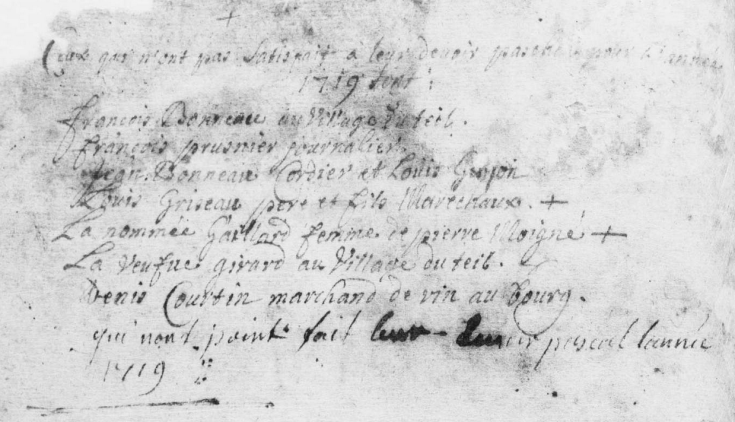 +
Ceux qui n'ont pas satisfait a leur devoir pascal pour l'année
1719 sont :
francois Bonneau au village du teil.
francois prusnier journalier.
Jean Bonneau Cordier et Louis Guyon
Louis Griseau pere et fils Marechaux. +
La nommée Gaillard femme de pierre Moigné +
La Veufue girard au Village du teil.
Denis Courtin marchand de vin au bourg.
qui nont point fait leur devoir pascal lannée
1719